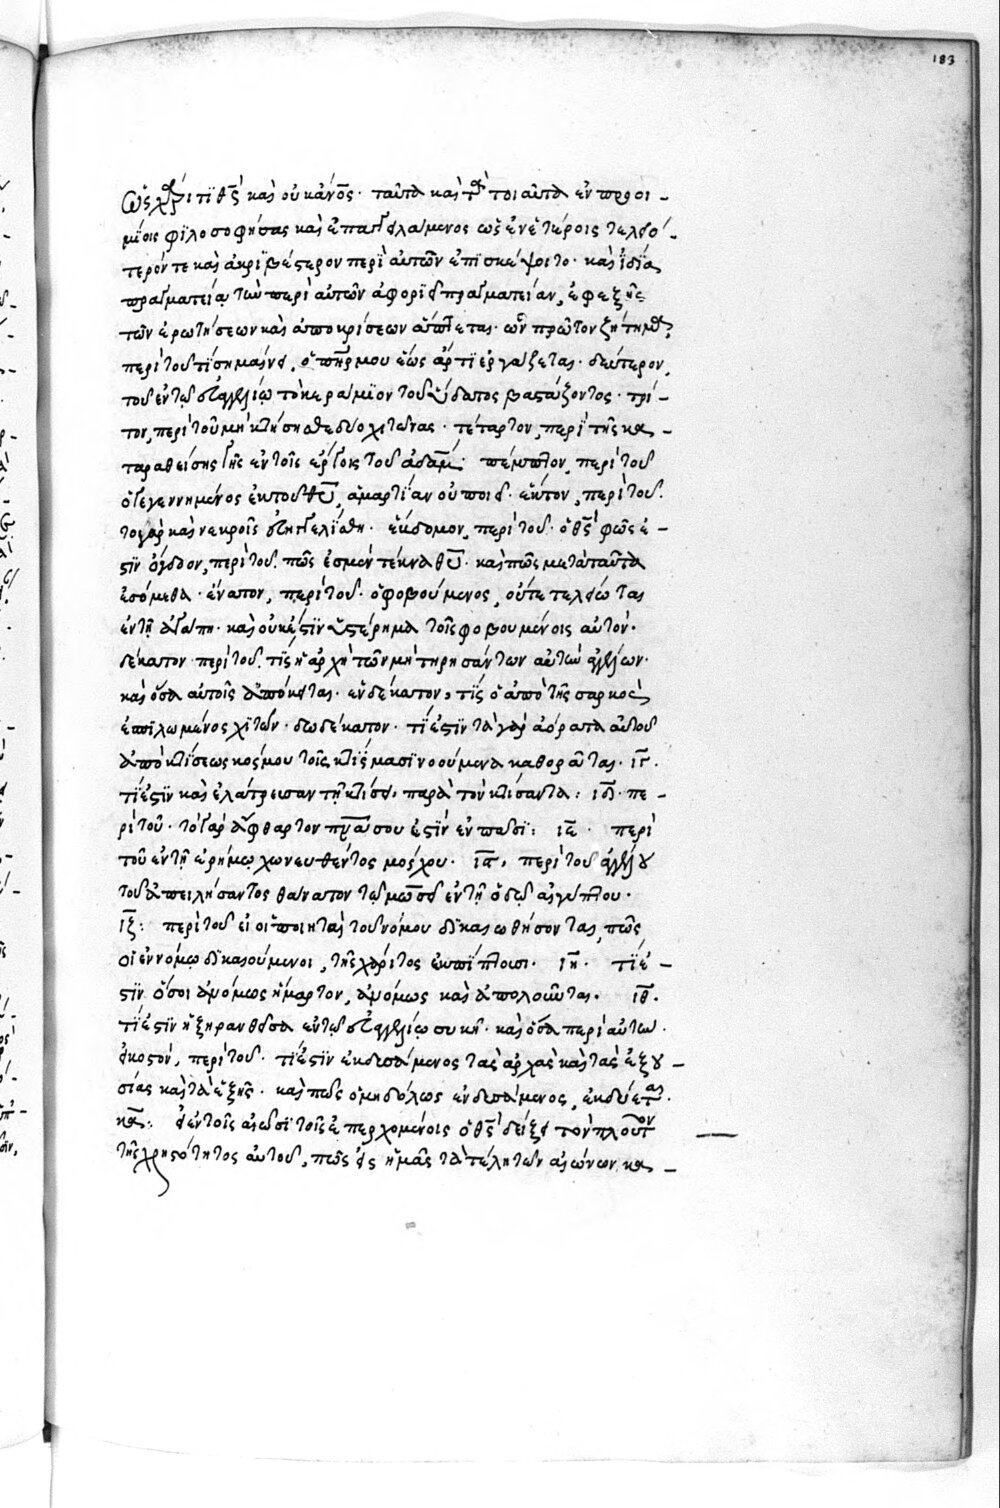 183
τιθς καὶ οὐκ ἄνος· ταῦτα καὶ τὰ τοιαῦτα ἐν προοι-
μίοις φιλοσοφήσας καὶ ἐπαγγειλάμενος ὡς ἐν ἑτέροις τελεώ-
τερόν τε καὶ ἀκριβέστερον περὶ αὐτῶν ἐπισκέψοιτο· καὶ ἰδίᾳ
πραγματείᾳ τὴν περὶ αὐτῶν ἀφορίσει πραγματείαν, ἐφεξῆς
τῶν ἐρωτήσεων καὶ ἀποκρίσεων ἅπτεται· ὧν πρῶτον ζήτημα
περὶ τοῦ τί σημαίνει, ὁ πηρ μου ἕως ἄρτι ἐργάζεται· δεύτερον,
τοῦ ἐν τῷ εὐαγγελίῳ τὸ κεράμιον τοῦ ὕδατος βαστάζοντος· τρί-
τον, περὶ τοῦ μὴ κτήσησθε δύο χιτῶνας· τέταρτον, περὶ τῆς κα-
ταραθείσης γῆς ἐν τοῖς ἔργοις τοῦ ἀδάμ· πέμπτον, περὶ τοῦ
ὁ γεγεννημένος ἐκ τοῦ θυ, ἁμαρτίαν οὐ ποιεῖ· ἕκτον, περὶ τοῦ·
τὸ γὰρ καὶ νεκροῖς εὐηγγελίσθη· ἕβδομον, περὶ τοῦ· ὁ θς φῶς ἐ-
στιν ὄγδοον, περὶ τοῦ· πῶς ἐσμὲν τέκνα θυ· καὶ πῶς μετὰ ταῦτα
ἐσόμεθα· ἔνατον, περὶ τοῦ· ὁ φοβούμενος, οὔτε τελείωται
ἐν τῇ ἀγάπῃ· καὶ οὐκ ἔστιν ὑστέρημα τοῖς φοβουμένοις αὐτόν·
δέκατον περὶ τοῦ· τίς ἡ ἀρχὴ τῶν μὴ τηρησάντων αὐτὴν ἀγγέλων·
καὶ ὅσα αὐτοῖς ἀπόκειται· ἑνδέκατον, τίς ὁ ἀπὸ τῆς σαρκὸς
ἐσπιλωμένος χιτών· δωδέκατον· τί ἐστιν τὰ γὰρ ἀόρατα αὐτοῦ
ἀπὸ κτίσεως κόσμου τοῖς κτίσμασι νοούμενα καθορᾶται· ιγ·
τί ἐστιν καὶ ἐλάτρευσαν τῇ κτίσει παρὰ τὸν κτίσαντα: ιδ· πε-
ρὶ τοῦ· τὸ γὰρ ἄφθαρτον πνα σου ἐστὶν ἐν πᾶσι: ιε· περὶ
τοῦ ἐν τῇ ἐρήμῳ χωνευθέντος μόσχου· ις, περὶ τοῦ ἀγγέλου
τοῦ ἀπειλήσαντος θάνατον τῷ μωσεῖ ἐν τῇ ὁδῷ αἰγύπτου·
ιζ: περὶ τοῦ εἰ οἱ ποιηταὶ τοῦ νόμου δικαιωθήσονται, πῶς
οἱ ἐν νόμῳ δικαιούμενοι, τῆς χάριτος ἐκπίπτουσι· ιη· τί ἐ-
στιν ὅσοι ἀνόμως ἥμαρτον, ἀνόμως καὶ ἀπολοῦνται· ιθ·
τί ἐστιν ἡ ξηρανθεῖσα ἐν τῷ εὐαγγελίῳ συκῆ· καὶ ὅσα περὶ αὐτῆς·
εἰκοστόν, περὶ τοῦ· τί ἐστιν ἐκδυσάμενος τὰς ἀρχὰς καὶ τὰς ἐξου-
σίας καὶ τὰ ἑξῆς· καὶ πῶς ὁ μηδόλως ἐνδυσάμενος, ἐκδύεται·
κα: εἰ ἐν τοῖς αἰῶσι τοῖς ἐπερχομένοις ὁ θς δείξει τὸν πλοῦτον
τῆς χρηστότητος αὐτοῦ, πῶς εἰς ἡμᾶς τὰ τέλη τῶν αἰώνων κα-